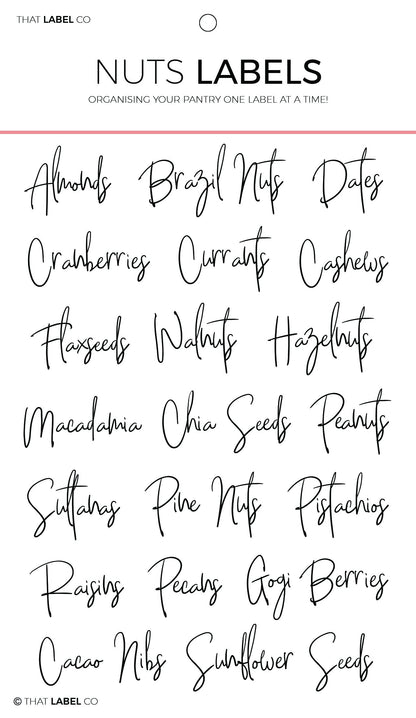 THAT LABEL CO
NUTS LABELS
ORGANISING YOUR PANTRY ONE LABEL AT A TIME!
Almonds Brazil Nuts Dates
Cranberries Currants Cashews
Flaxseeds Walnuts Hazelnuts
Macadamia Chia Seeds Peanuts
Sultanas Pine Nuts Pistachios
Raisins Pecans Gogi Berries
Cacao Nibs Sunflower Seeds
© THAT LABEL CO